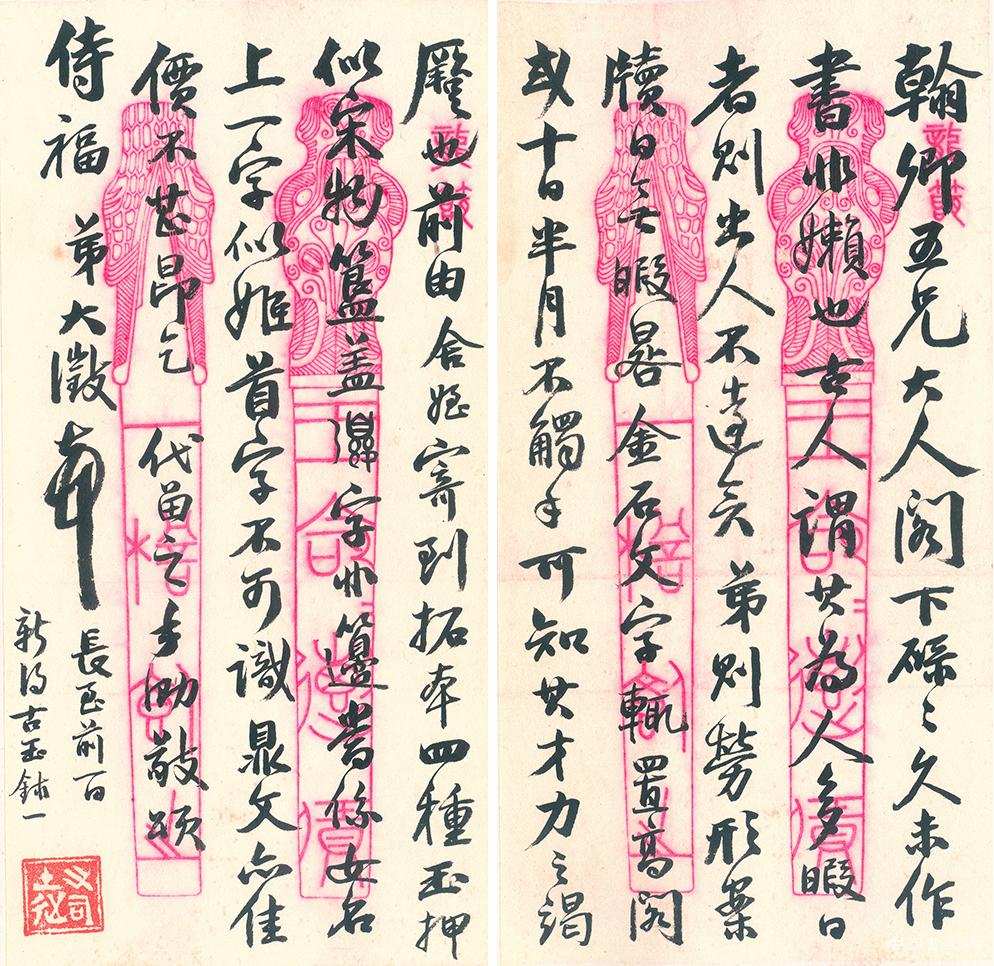 翰卿五兄大人閣下碌々久未作
書非嬾也古人謂其為人多暇日
者則出人不遠矣弟則勞形案
牘日无暇晷金石文字輒置高閣
或十日半月不觸手可知其才力之竭
蹷也前由舍姪寄到拓本四種玉押
似宋物簠盖字非籩當係女名
上一字似姬首字不可識鼎文亦佳
價不甚昂乞 代留之手泐敬頌
侍福 弟大澂頓首
長至前一日
新得古玉鉥一